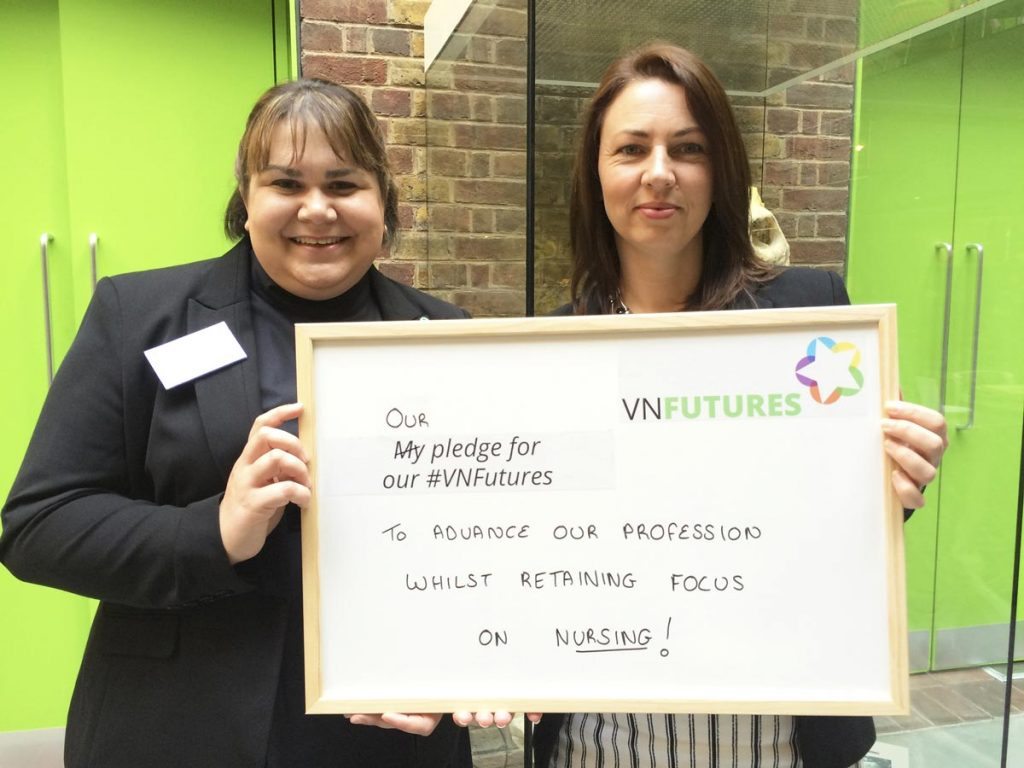 VNFUTURES
OUR
My pledge for
our #VNFutures
TO ADVANCE OUR PROFESSION
WHILST RETAINING FOCUS
ON NURSING!